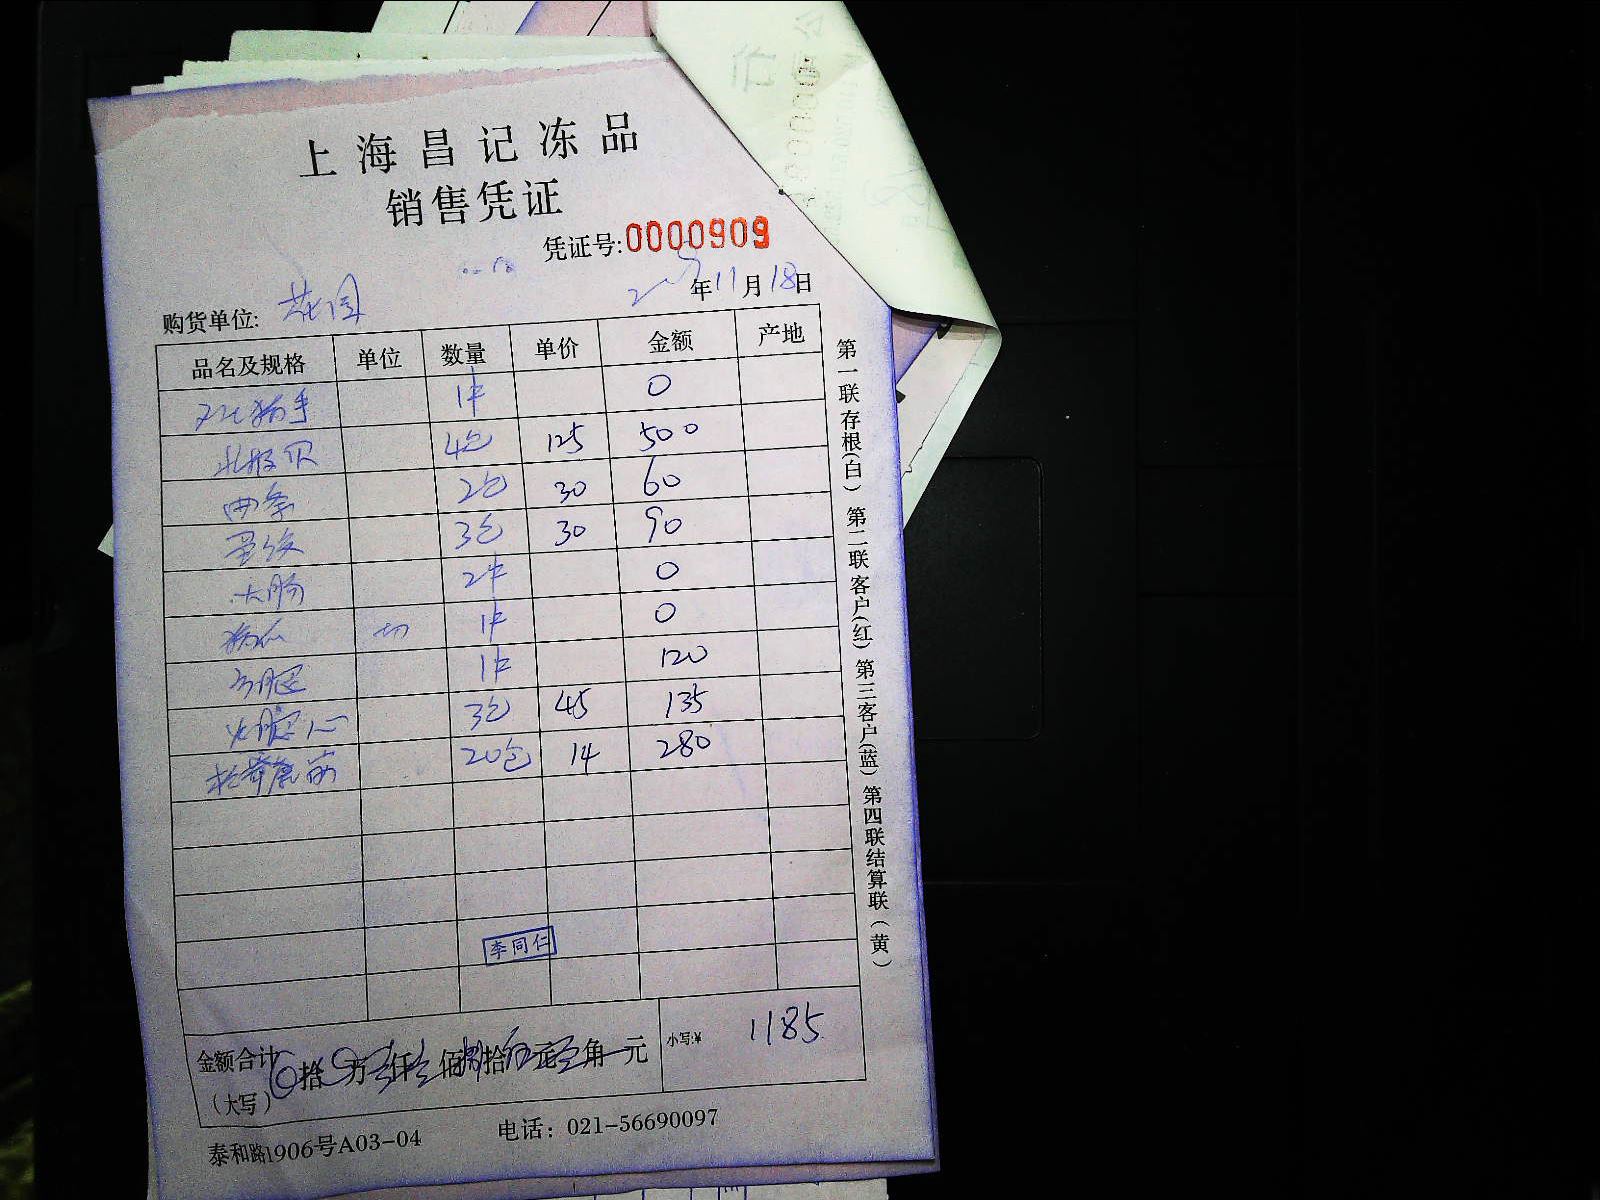 上海昌记冻品
销售凭证
凭证号:0000909
年11月18日
购货单位: 花园
品名及规格 单位 数量 单价 金额 产地
猪手 1件 0
北极贝 4包 125 500
2包 30 60
3包 30 90
大肠 2件 0
切 1件 0
1件 120
3包 45 135
20包 14 280
李同仁
金额合计 拾 万 仟 佰 拾 元 角 元 小写:¥ 1185
(大写)
泰和路1906号A03-04 电话: 021-56690097
第一联存根(白) 第二联客户(红) 第三客户(蓝) 第四联结算联(黄)